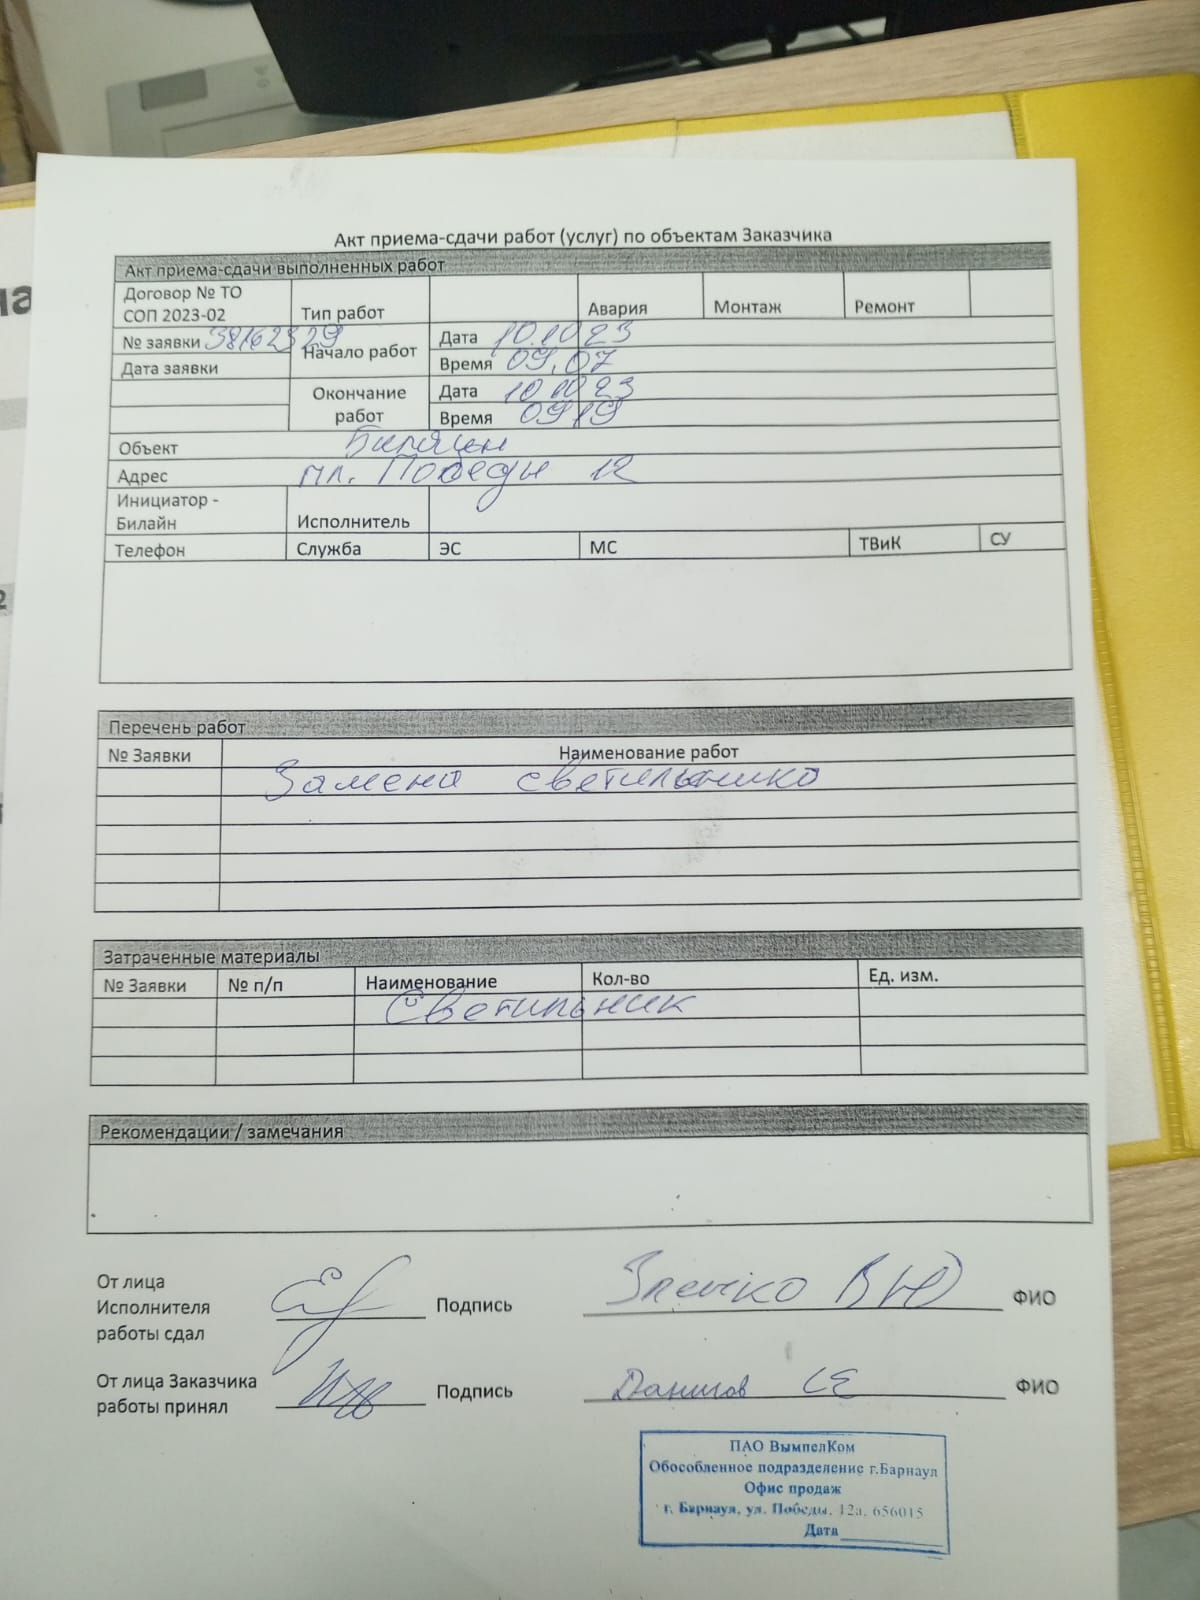 Акт приема-сдачи работ (услуг) по объектам Заказчика
Акт приема-сдачи выполненных работ
Договор № ТО СОП 2023-02 Тип работ Авария Монтаж Ремонт
№ заявки 38162329 Начало работ Дата 10.10 23
Дата заявки Время 09.07
Окончание работ Дата 10 10 23
Время 09 19
Объект Билайн
Адрес пл. Победы 12
Инициатор - Билайн Исполнитель
Телефон Служба ЭС МС ТВиК СУ
Перечень работ
№ Заявки Наименование работ
Замена светильника
Затраченные материалы
№ Заявки № п/п Наименование Кол-во Ед. изм.
Светильник
Рекомендации / замечания
От лица
Исполнителя Подпись ВЮ ФИО
работы сдал
От лица Заказчика Подпись Данилов СЕ ФИО
работы принял
ПАО ВымпелКом
Обособленное подразделение г.Барнаул
Офис продаж
г. Барнаул, ул. Победы, 12а, 656015
Дата